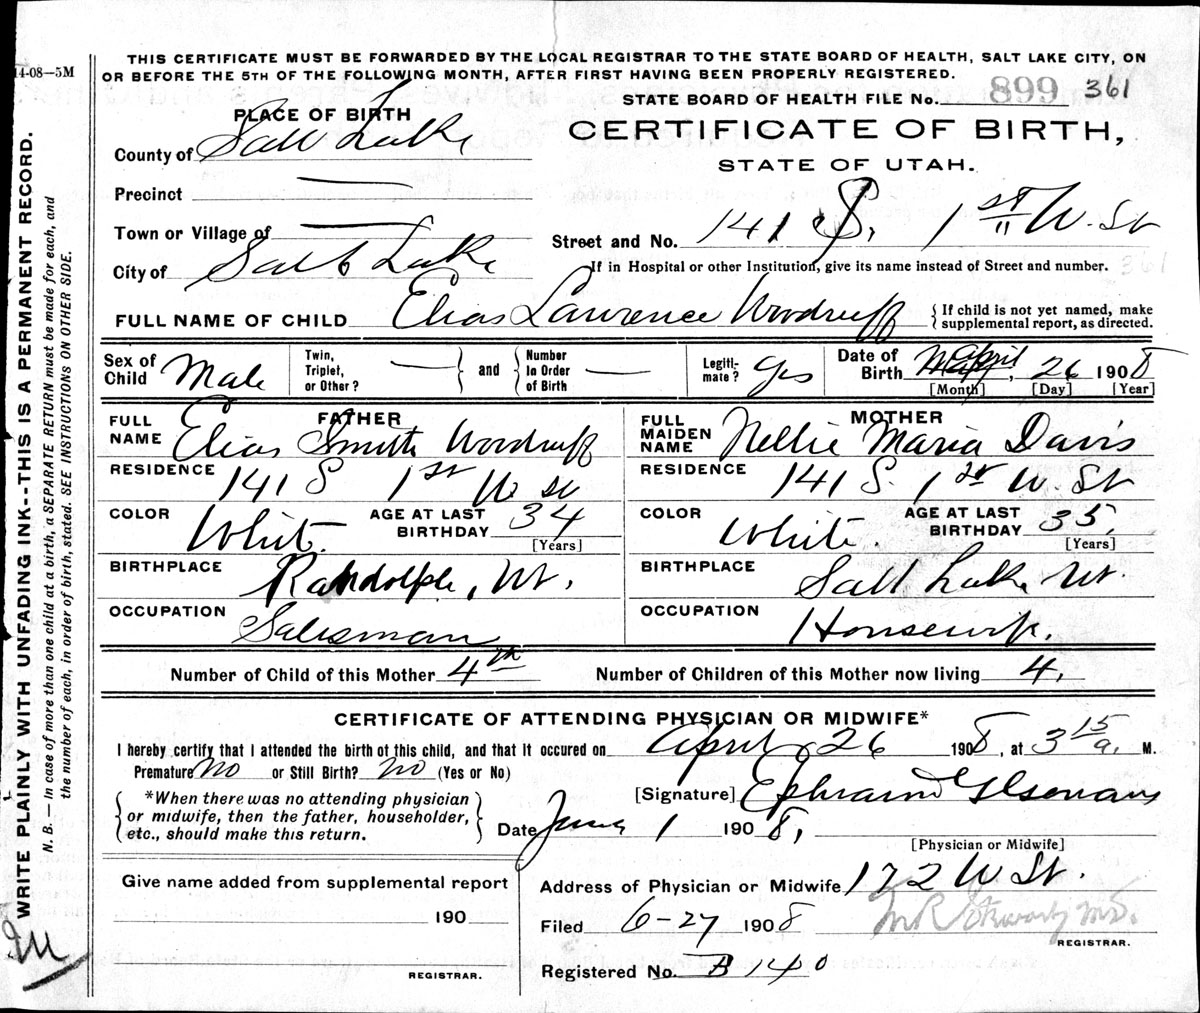 14-08—5M
THIS CERTIFICATE MUST BE FORWARDED BY THE LOCAL REGISTRAR TO THE STATE BOARD OF HEALTH, SALT LAKE CITY, ON
OR BEFORE THE 5TH OF THE FOLLOWING MONTH, AFTER FIRST HAVING BEEN PROPERLY REGISTERED.
STATE BOARD OF HEALTH FILE No. 899 361
PLACE OF BIRTH
CERTIFICATE OF BIRTH,
STATE OF UTAH.
County of Salt Lake
Precinct —
Town or Village of —
Street and No. 141 S. 1st W. St
City of Salt Lake
If in Hospital or other Institution, give its name instead of Street and number.
361
FULL NAME OF CHILD Elias Lawrence Woodruff { If child is not yet named, make supplemental report, as directed.
Sex of Child Male Twin, Triplet, or Other? — } and { Number In Order of Birth — Legiti- mate? yes Date of Birth April, 26 1908
[Month] [Day] [Year]
FATHER MOTHER
FULL NAME Elias Smith Woodruff FULL MAIDEN NAME Nellie Maria Davis
RESIDENCE 141 S 1st W St RESIDENCE 141 S. 1st W. St
COLOR White AGE AT LAST BIRTHDAY 34 [Years] COLOR White. AGE AT LAST BIRTHDAY 35, [Years]
BIRTHPLACE Randolph, Ut. BIRTHPLACE Salt Lake Ut.
OCCUPATION Salesman OCCUPATION Housewife.
Number of Child of this Mother 4th Number of Children of this Mother now living 4.
CERTIFICATE OF ATTENDING PHYSICIAN OR MIDWIFE*
I hereby certify that I attended the birth of this child, and that it occured on April 26 1908, at 3 15 a. M.
Premature No or Still Birth? No (Yes or No)
[Signature] Ephraim
{ *When there was no attending physician
or midwife, then the father, householder,
etc., should make this return. }
Date June 1 1908,
[Physician or Midwife]
Give name added from supplemental report
190
REGISTRAR.
Address of Physician or Midwife 172 W St.
Filed 6-27 1908
M.D.
REGISTRAR.
Registered No. B 140
WRITE PLAINLY WITH UNFADING INK--THIS IS A PERMANENT RECORD.
N. B. — In case of more than one child at a birth, a SEPARATE RETURN must be made for each, and
the number of each, in order of birth, stated. SEE INSTRUCTIONS ON OTHER SIDE.